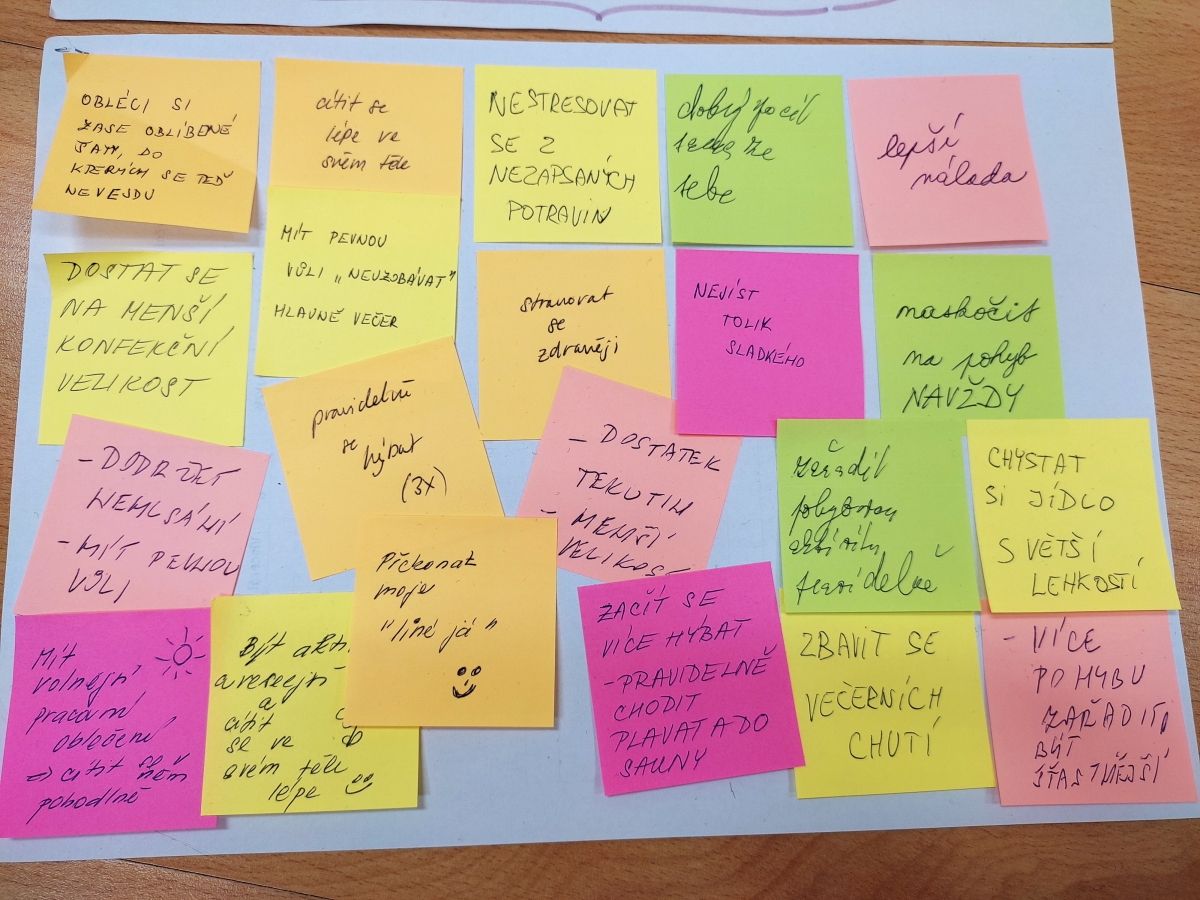 OBLÉCI SI
ZASE OBLÍBENÉ
ŠATY, DO
KTERÝCH SE TEĎ
NEVEJDU
cítit se
lépe ve
svém těle
NESTRESOVAT
SE Z
NEZAPSANÝCH
POTRAVIN
dobrý pocit
ze
sebe
lepší
nálada
DOSTAT SE
NA MENŠÍ
KONFEKČNÍ
VELIKOST
MÍT PEVNOU
VŮLI „NEUZOBÁVAT"
HLAVNĚ VEČER
stravovat
se
zdravěji
NEJÍST
TOLIK
SLADKÉHO
naskočit
na pohyb
NAVŽDY
- DODRŽET
NEMLSÁNÍ
- MÍT PEVNOU
VŮLI
pravidelně
se
hýbat
(3x)
- DOSTATEK
TEKUTIN
- MENŠÍ
VELIKOST
zařadit
pohybovou
aktivitu
pravidelně
CHYSTAT
SI JÍDLO
S VĚTŠÍ
LEHKOSTÍ
Mít
volnější
pracovní
oblečení
=> cítit se v něm
pohodlně
Být
a veselejší
a
cítit
se ve
svém těle
lépe
Překonat
moje
"líné já"
ZAČÍT SE
VÍCE HÝBAT
- PRAVIDELNĚ
CHODIT
PLAVAT A DO
SAUNY
ZBAVIT SE
VEČERNÍCH
CHUTÍ
- VÍCE
POHYBU
ZAŘADIT,
BÝT
ŠŤASTNĚJŠÍ